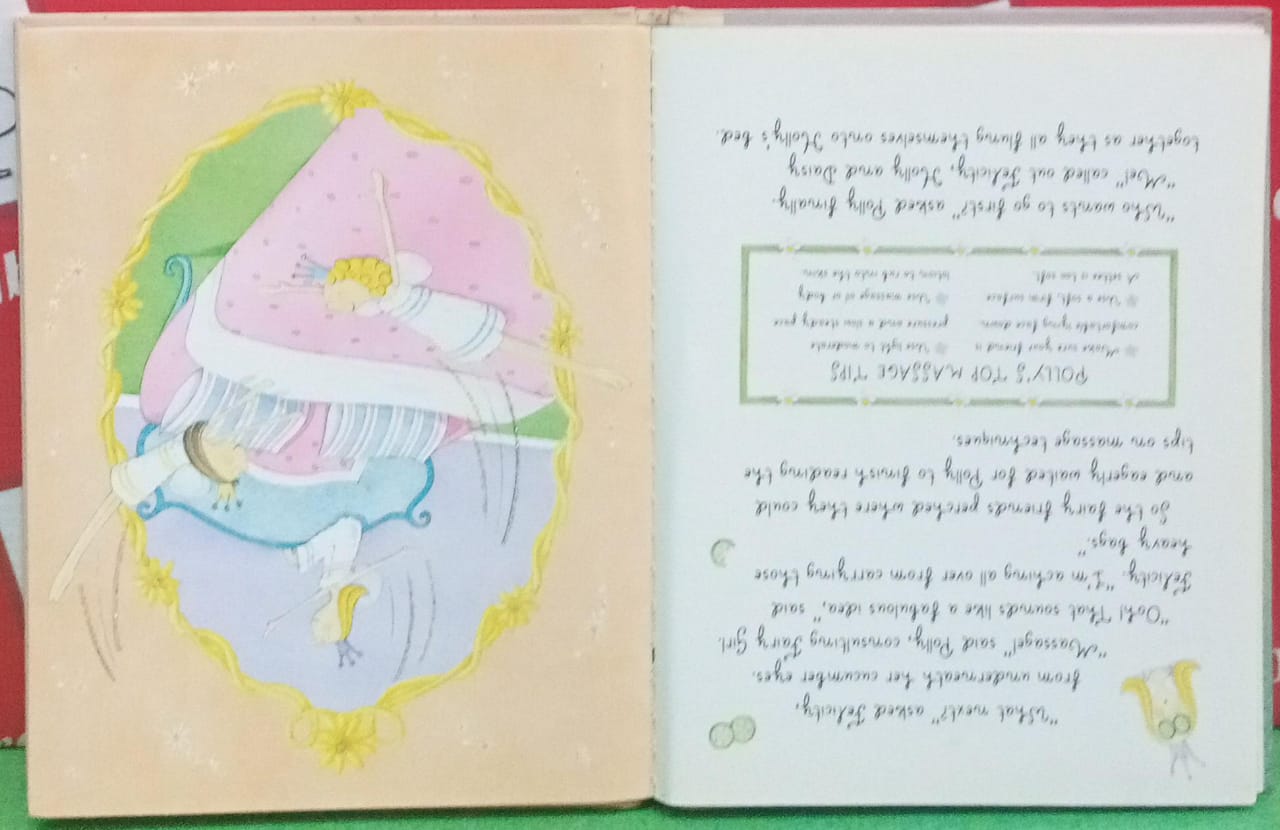 "What next?" asked Felicity,
from underneath her cucumber eyes.
"Massage!" said Polly, consulting Fairy Girl.
"Ooh! That sounds like a fabulous idea," said
Felicity. "I'm aching all over from carrying those
heavy bags."
So the fairy friends perched where they could
and eagerly waited for Polly to finish reading the
tips on massage techniques.
POLLY'S TOP MASSAGE TIPS
Make sure your friend is
comfortable lying face down.
Use a soft, firm surface.
A settee is too soft.
Use light to moderate
pressure and a slow steady pace
Use massage or body
lotion to rub into the skin.
"Who wants to go first?" asked Polly finally.
"Me!" called out Felicity, Holly and Daisy
together as they all flung themselves onto Holly's bed.